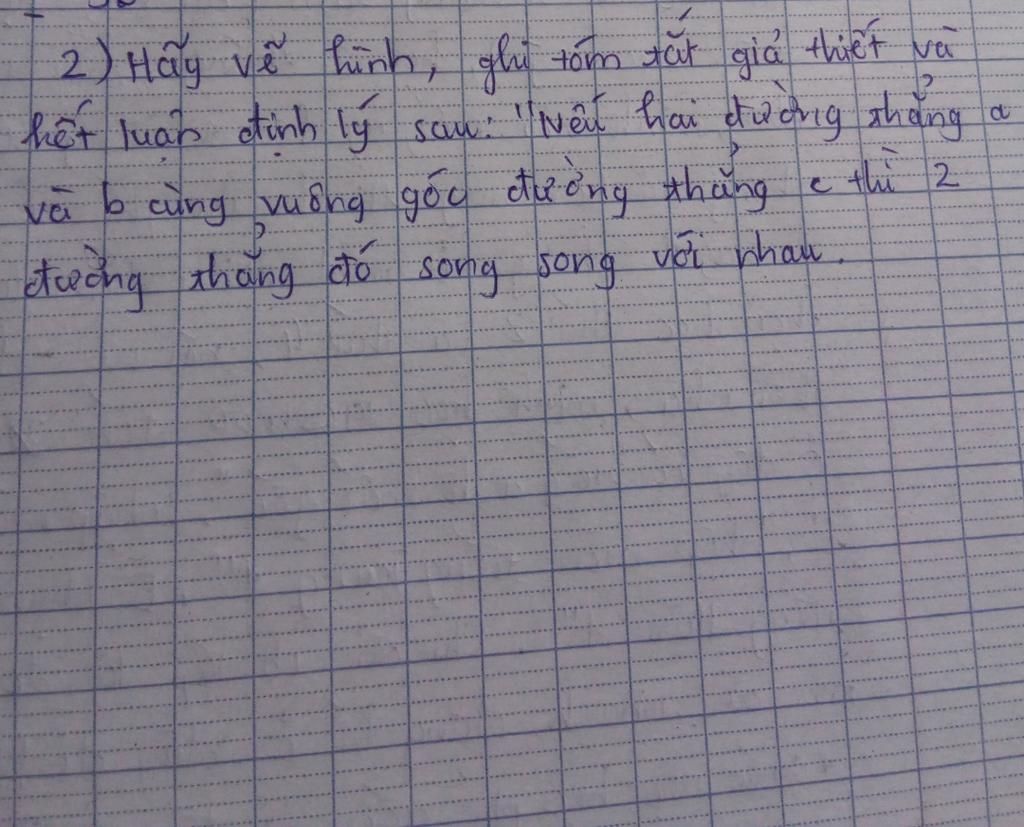 2) Hãy vẽ hình, ghi tóm tắt giả thiết và
kết luận định lý sau: "Nếu hai đường thẳng a
và b cùng vuông góc đường thẳng c thì 2
đường thẳng đó song song với nhau.